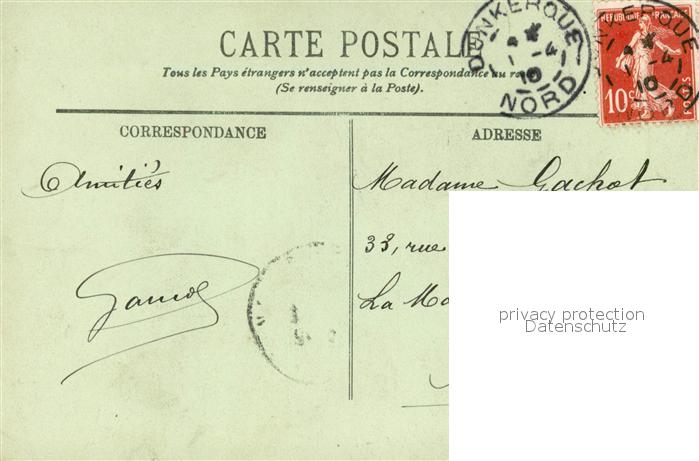 CARTE POSTALE
Tous les Pays étrangers n'acceptent pas la Correspondance au
(Se renseigner à la Poste).
DUNKERQUE
1 -4
10
NORD
RÉPUBLIQUE FRANÇAISE
10 c
POSTES
CORRESPONDANCE
ADRESSE
Amitiés
Madame Gachot
33, rue
La
privacy protection
Datenschutz